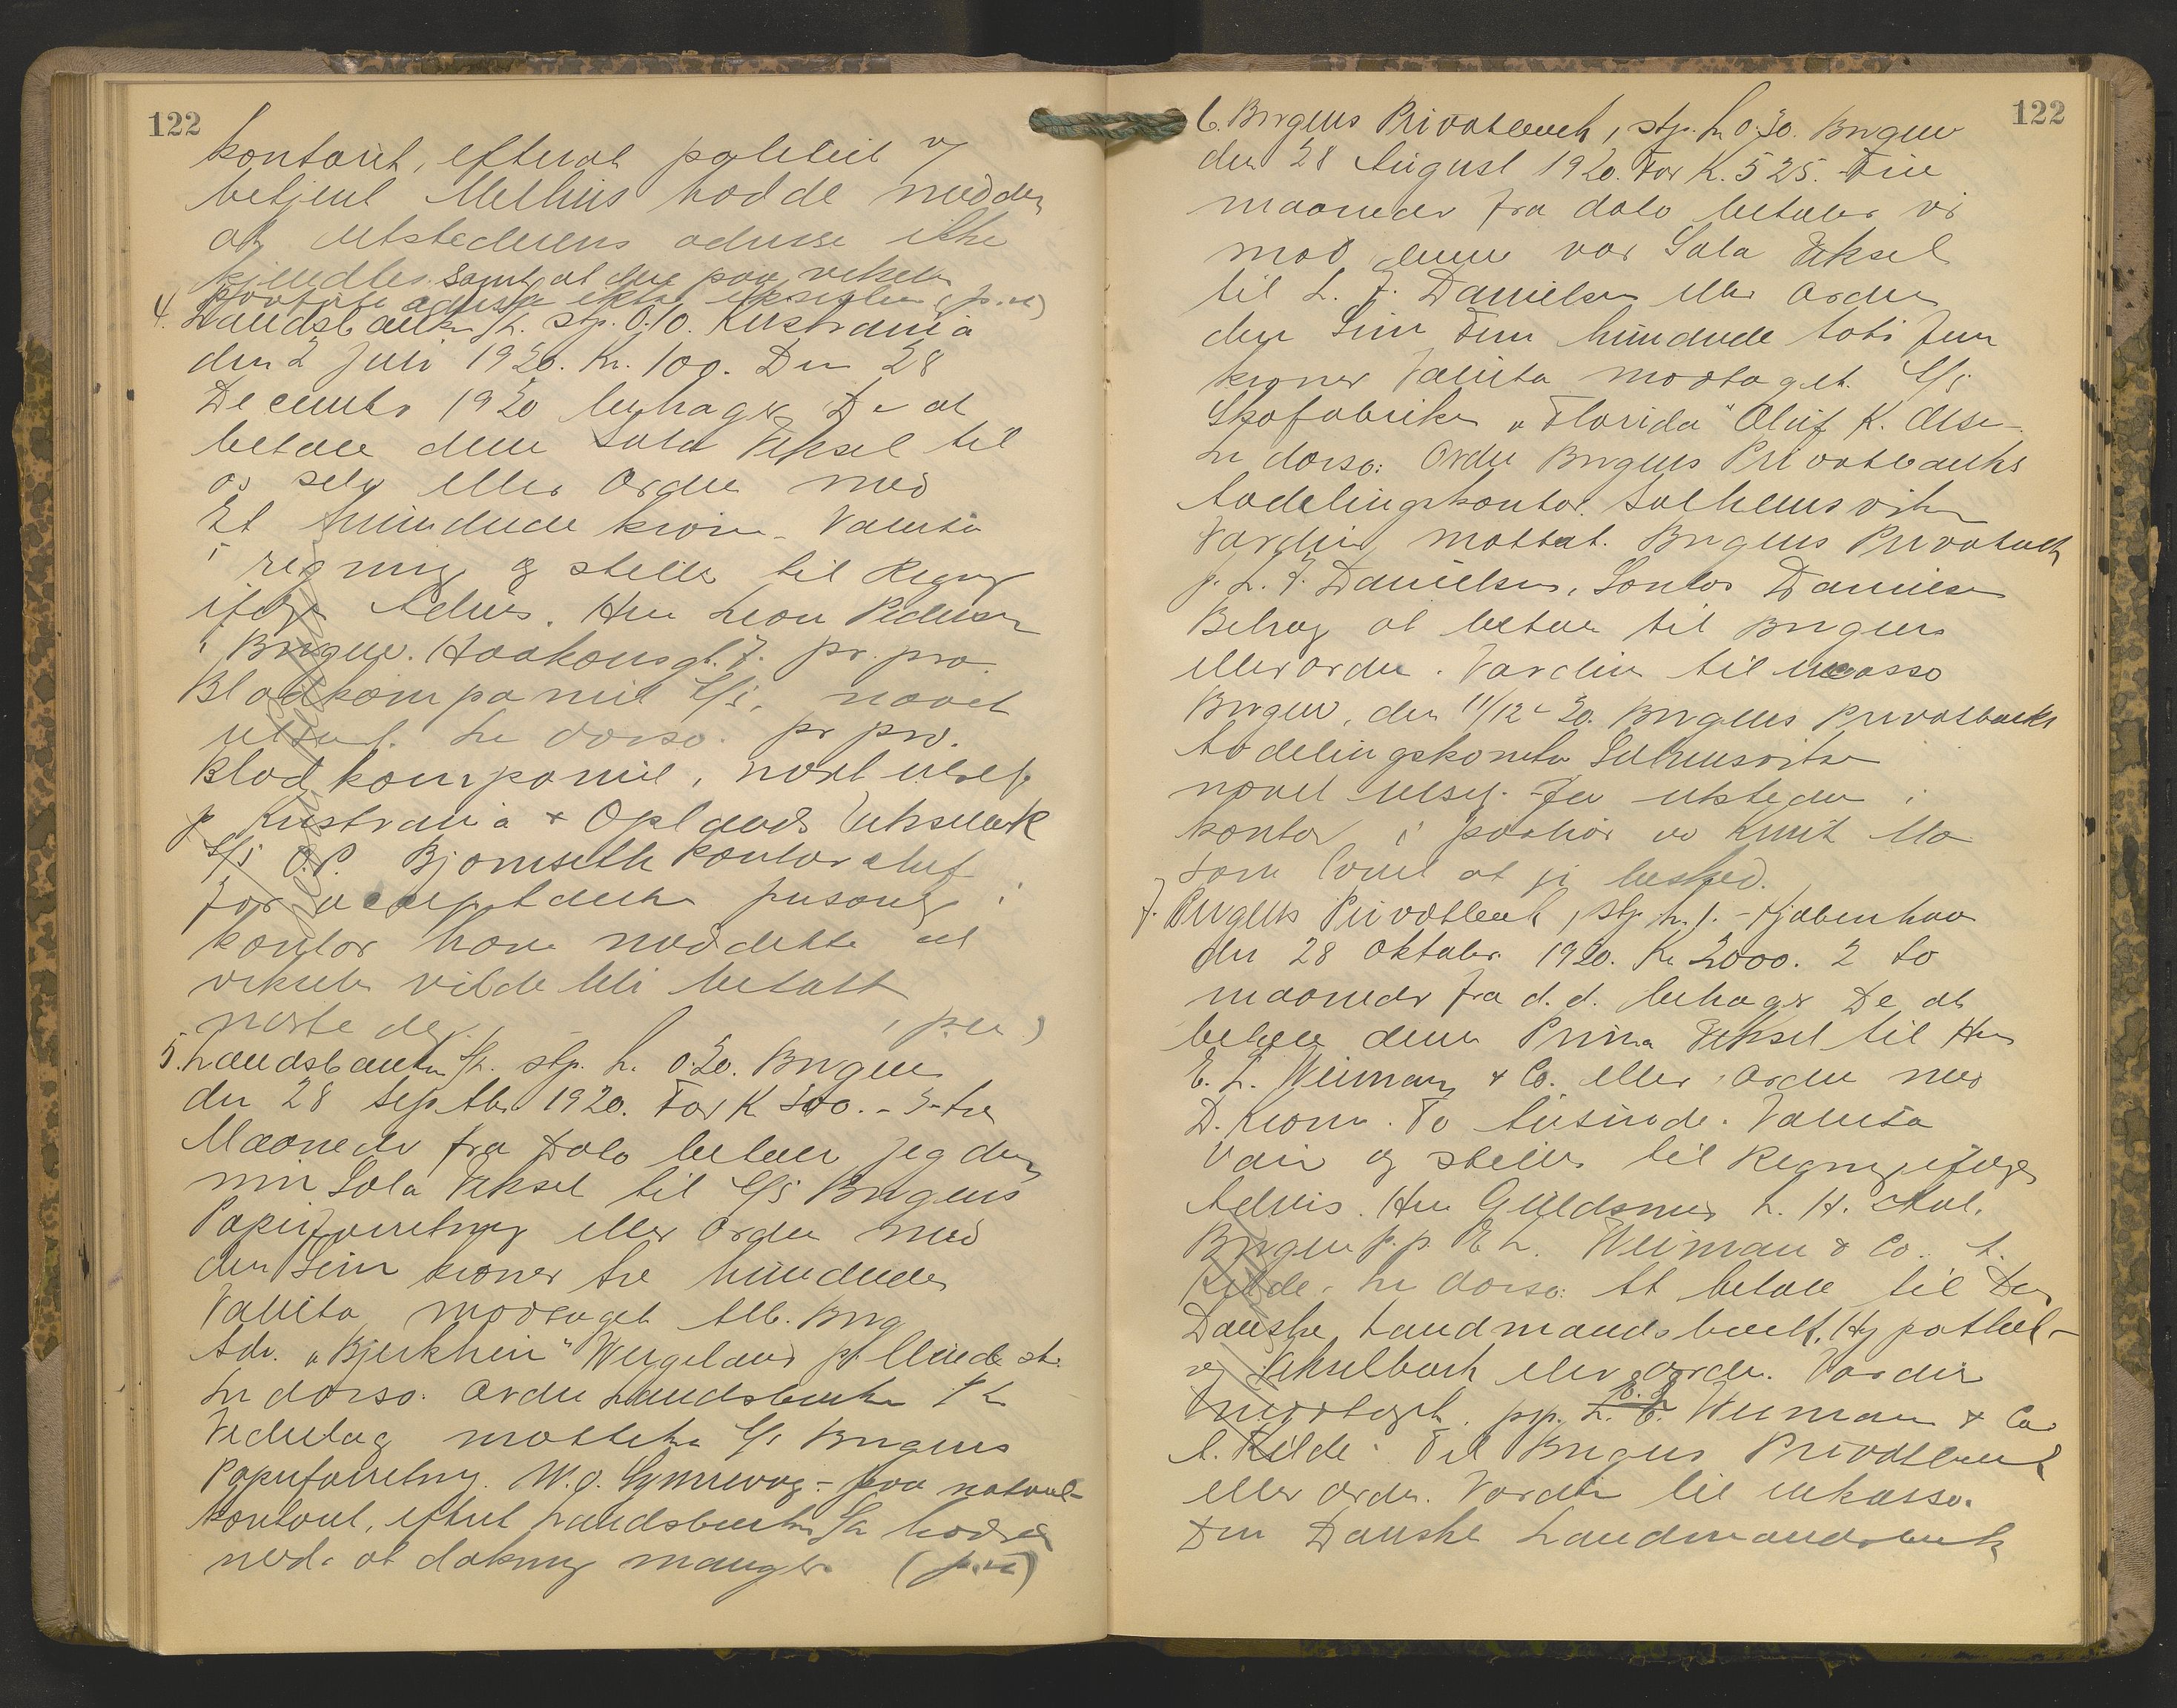 122
kontoret, efterat politiet v/
betjent Melhus hadde meddelt
at utstederens adresse ikke
kjendtes samt at den paa vekselen
paaførte adresse ikke eksisterer (p.u)
4. Landsbanken A/L. stp. 0.10. Kristiania
den 2 Juli 1920. Kr. 100. Den 28
December 1920 behager De at
betale denne Sola Veksel til
os selv eller Ordre med
Et hundrede kroner Valuta
i regning og stilles til Regning
ifølge Advis. Herr Leon Pedersen
i Bergen. Haakonsgt. 7. pr. pro.
Bladkompaniet A/S, navet
utsat. In dorso. pr pro.
Bladkompaniet, navet utsat
p Kristiania & Oplands Vekselbank
A/S O.P. Bjørnseth kontorchef
For acceptanten personlig i
kontor hans meddelte at
vekselen vilde bli betalt
næste dag. (p.u.)
5. Landsbanken A/L. stp. L. 0.30. Bergen
den 28 Septbr 1920. For K 300. - 3 tre
Maaneder fra Dato betaler jeg denne
min Sola Veksel til A/S Bergens
Papirforretning eller Ordre med
den Sum kroner tre hundrede
Valuta modtaget Alb. Berg
Adr. "Bjerkheim" Wergeland pr Minde st.
In dorso: Ordre Landsbanken A/L
Vederlag mottatt A/S Bergens
Papirforretning. W. O. - paa notarial-
kontoret, efterat Landsbanken A/L hadde
medd. at dækning mangler. (p.u)
122
6. Bergens Privatbank, stp. L 0.30. Bergen
den 28 August 1920. For K. 525. Fire
maaneder fra dato betaler vi
mod denne vor Sola Veksel
til L. F. Danielsen eller Ordre
den Sum Fem hundrede toti fem
kroner Valuta modtaget. A/S
Skofabriken "Florida" Oluf K. Olsen
In dorso: Ordre Bergens Privatbanks
Avdelingskontor Solheimsviken
Værdien mottat. Bergens Privatbank
p. L. F. Danielsen, Danielsen
Beløp at betale til Bergens
eller ordre. Værdien til incasso
Bergen, den 11/12 - 20. Bergens Privatbanks
Avdelingskontor Solheimsviken
navet utsat. For utsteder i
kontor i paahør av Knut Mo
som lovet at gi besked.
7. Bergens Privatbank, stp. L. 1. - Kjøbenhavn
den 28 Oktober 1920. Kr 2000. 2 to
maaneder fra d.d. behager De at
betale denne Prima Veksel til Hrr
E. L. Weiman & Co. eller Ordre med
D. Kroner. To tusinde. Valuta
Vare og stilles til Regning ifølge
Advis. Herr Guldsmed L. H.
Bergen p.p. E L. Weiman & Co. A.
Kilde. In dorso: At betale til Den
Danske Landmandsbank, Hypothek-
og Vekselbank eller ordre. Værdien
modtaget. pp. E. L. Weiman & Co
A. Kilde. Til Bergens Privatbank
eller ordre. Værdien til inkasso.
Den Danske Landmandsbank